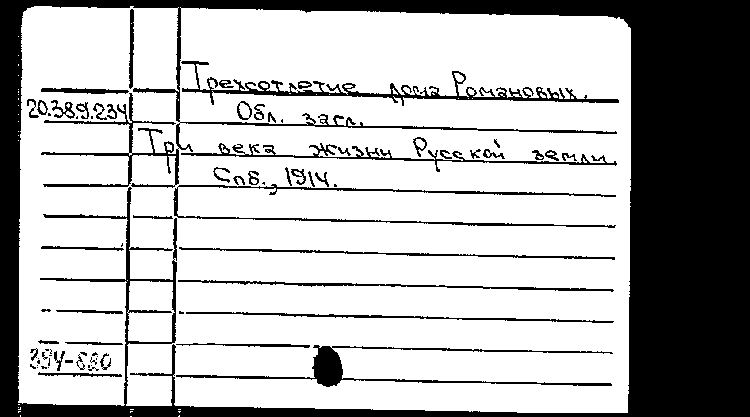 Трехсотлетие дома Романовых.
20.389.234 Обл. загл.
Три века жизни Русской земли.
Спб., 1914.
394-680